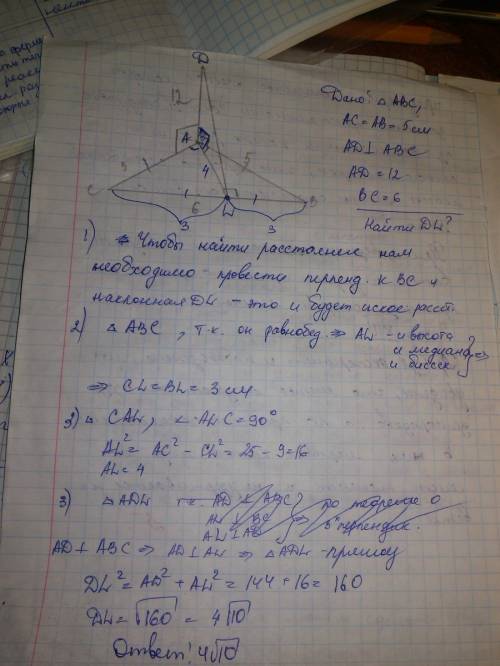 D
12
A
5
5
4
C
6
L
B
3
3
Дано: △ ABC,
AC = AB = 5см
AD ⊥ ABC
AD = 12
BC = 6
Найти DL?
1) Чтобы найти расстояние нам
необходимо провести перпенд. к BC и
наклонная DL - это и будет иское расст.
2) △ ABC, т.к. он равнобед. ⇒ AL - и высота
и медиана
и биссек. ⇒
⇒ CL = BL = 3 см
3) △ CAL, ∠ ALC = 90°
AL² = AC² - CL² = 25 - 9 = 16
AL = 4
3) △ ADL т.к. AD ⊥ ABC по теореме о
AL ⊥ BC ⇒ 3 перпендик.
AD ⊥ ABC ⇒ AD ⊥ AL ⇒ △ ADL - прямоу
DL² = AD² + AL² = 144 + 16 = 160
DL = √160 = 4√10
Ответ: 4√10